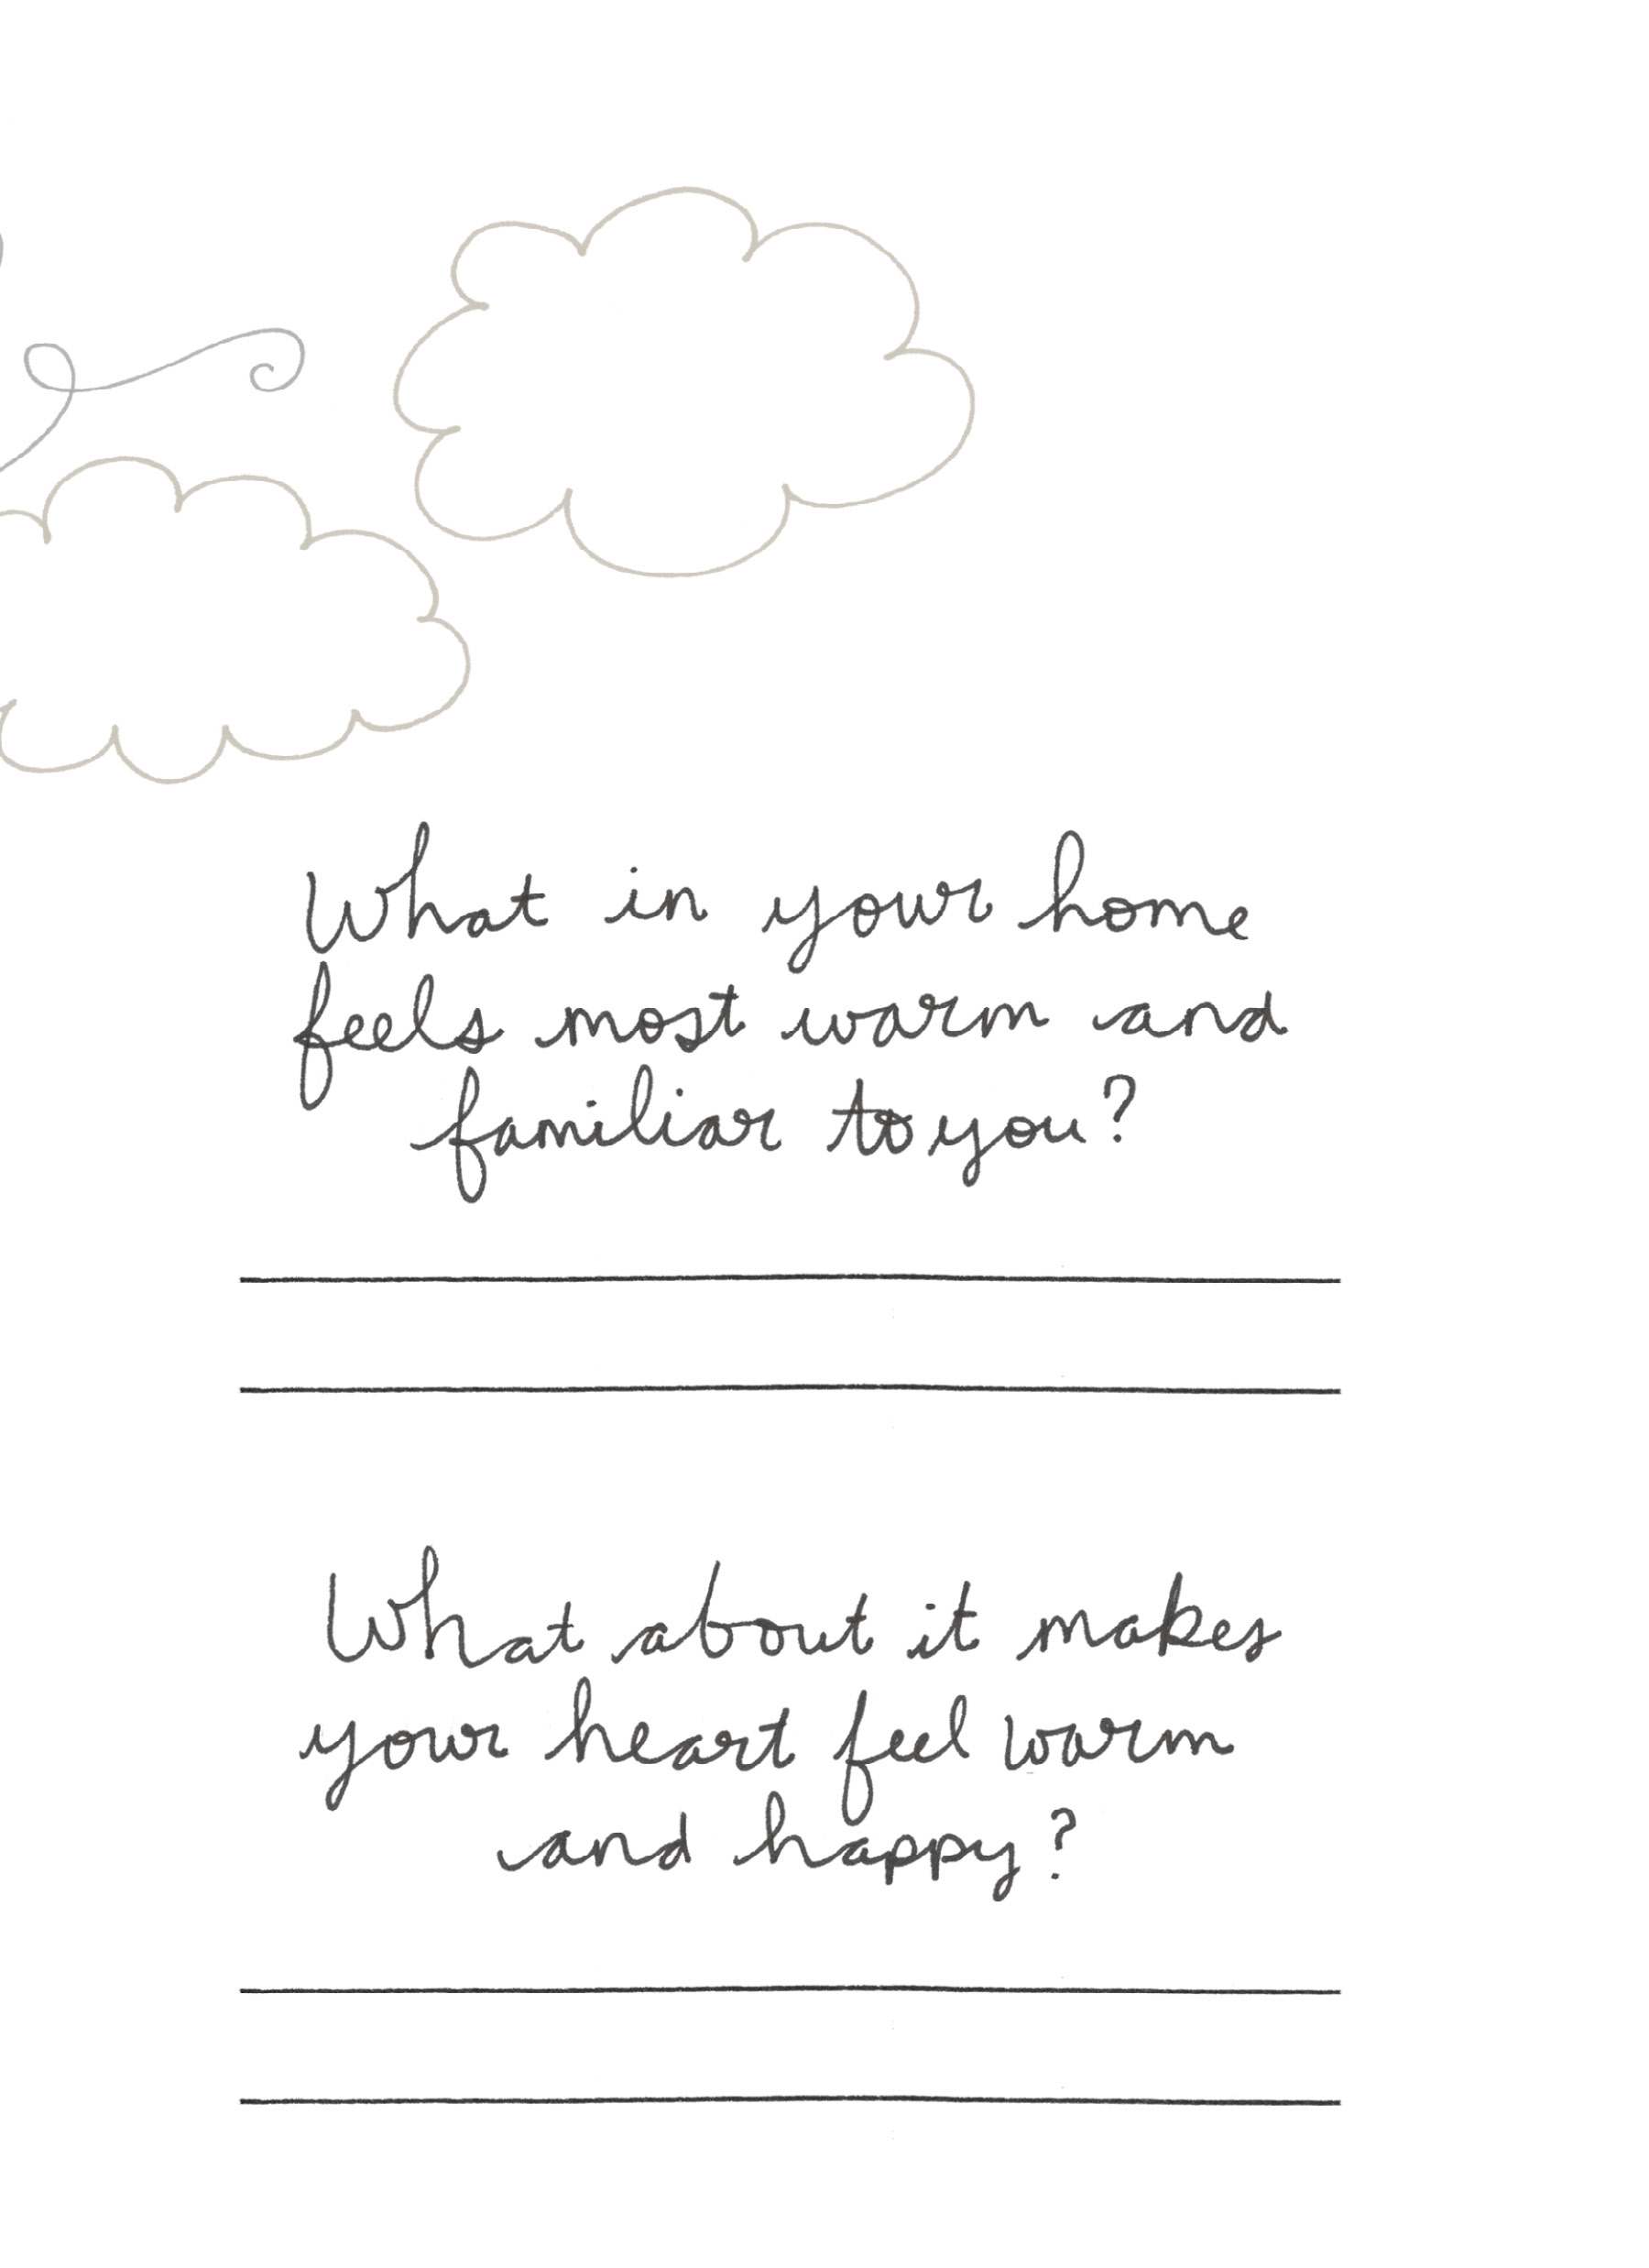 What in your home
feels most warm and
familiar to you?
What about it makes
your heart feel warm
and happy?